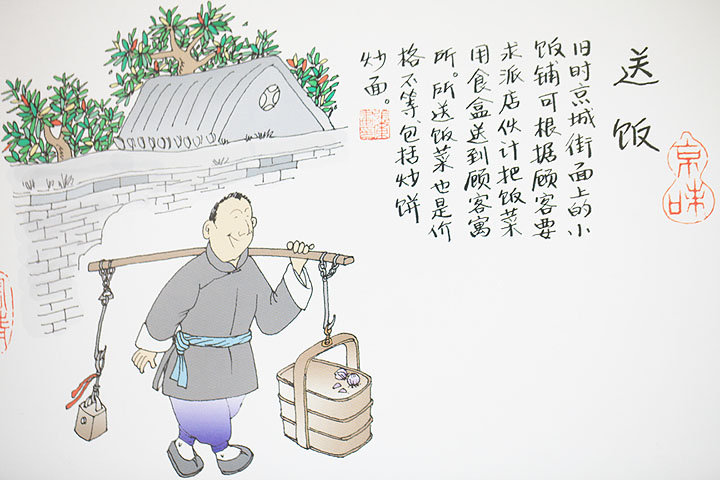 京味
送饭
旧时京城街面上的小
饭铺可根据顾客要
求派店伙计把饭菜
用食盒送到顾客寓
所。所送饭菜也是价
格不等包括炒饼
炒面。